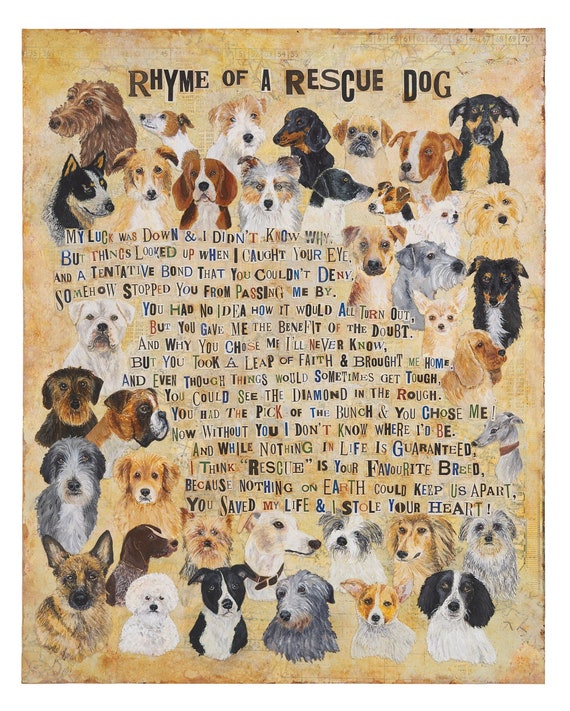 RHYME OF A RESCUE DOG
MY LUCK WAS DOWN & I DIDN'T KNOW WHY.
BUT THINGS LOOKED UP WHEN I CAUGHT YOUR EYE,
AND A TENTATIVE BOND THAT YOU COULDN'T DENY,
SOMEHOW STOPPED YOU FROM PASSING ME BY.
YOU HAD NO IDEA HOW IT WOULD ALL TURN OUT,
BUT YOU GAVE ME THE BENEFIT OF THE DOUBT.
AND WHY YOU CHOSE ME I'LL NEVER KNOW,
BUT YOU TOOK A LEAP OF FAITH & BROUGHT ME HOME.
AND EVEN THOUGH THINGS WOULD SOMETIMES GET TOUGH,
YOU COULD SEE THE DIAMOND IN THE ROUGH.
YOU HAD THE PICK OF THE BUNCH & YOU CHOSE ME!
NOW WITHOUT YOU I DON'T KNOW WHERE I'D BE.
AND WHILE NOTHING IN LIFE IS GUARANTEED,
I THINK "RESCUE" IS YOUR FAVOURITE BREED,
BECAUSE NOTHING ON EARTH COULD KEEP US APART,
YOU SAVED MY LIFE & I STOLE YOUR HEART!